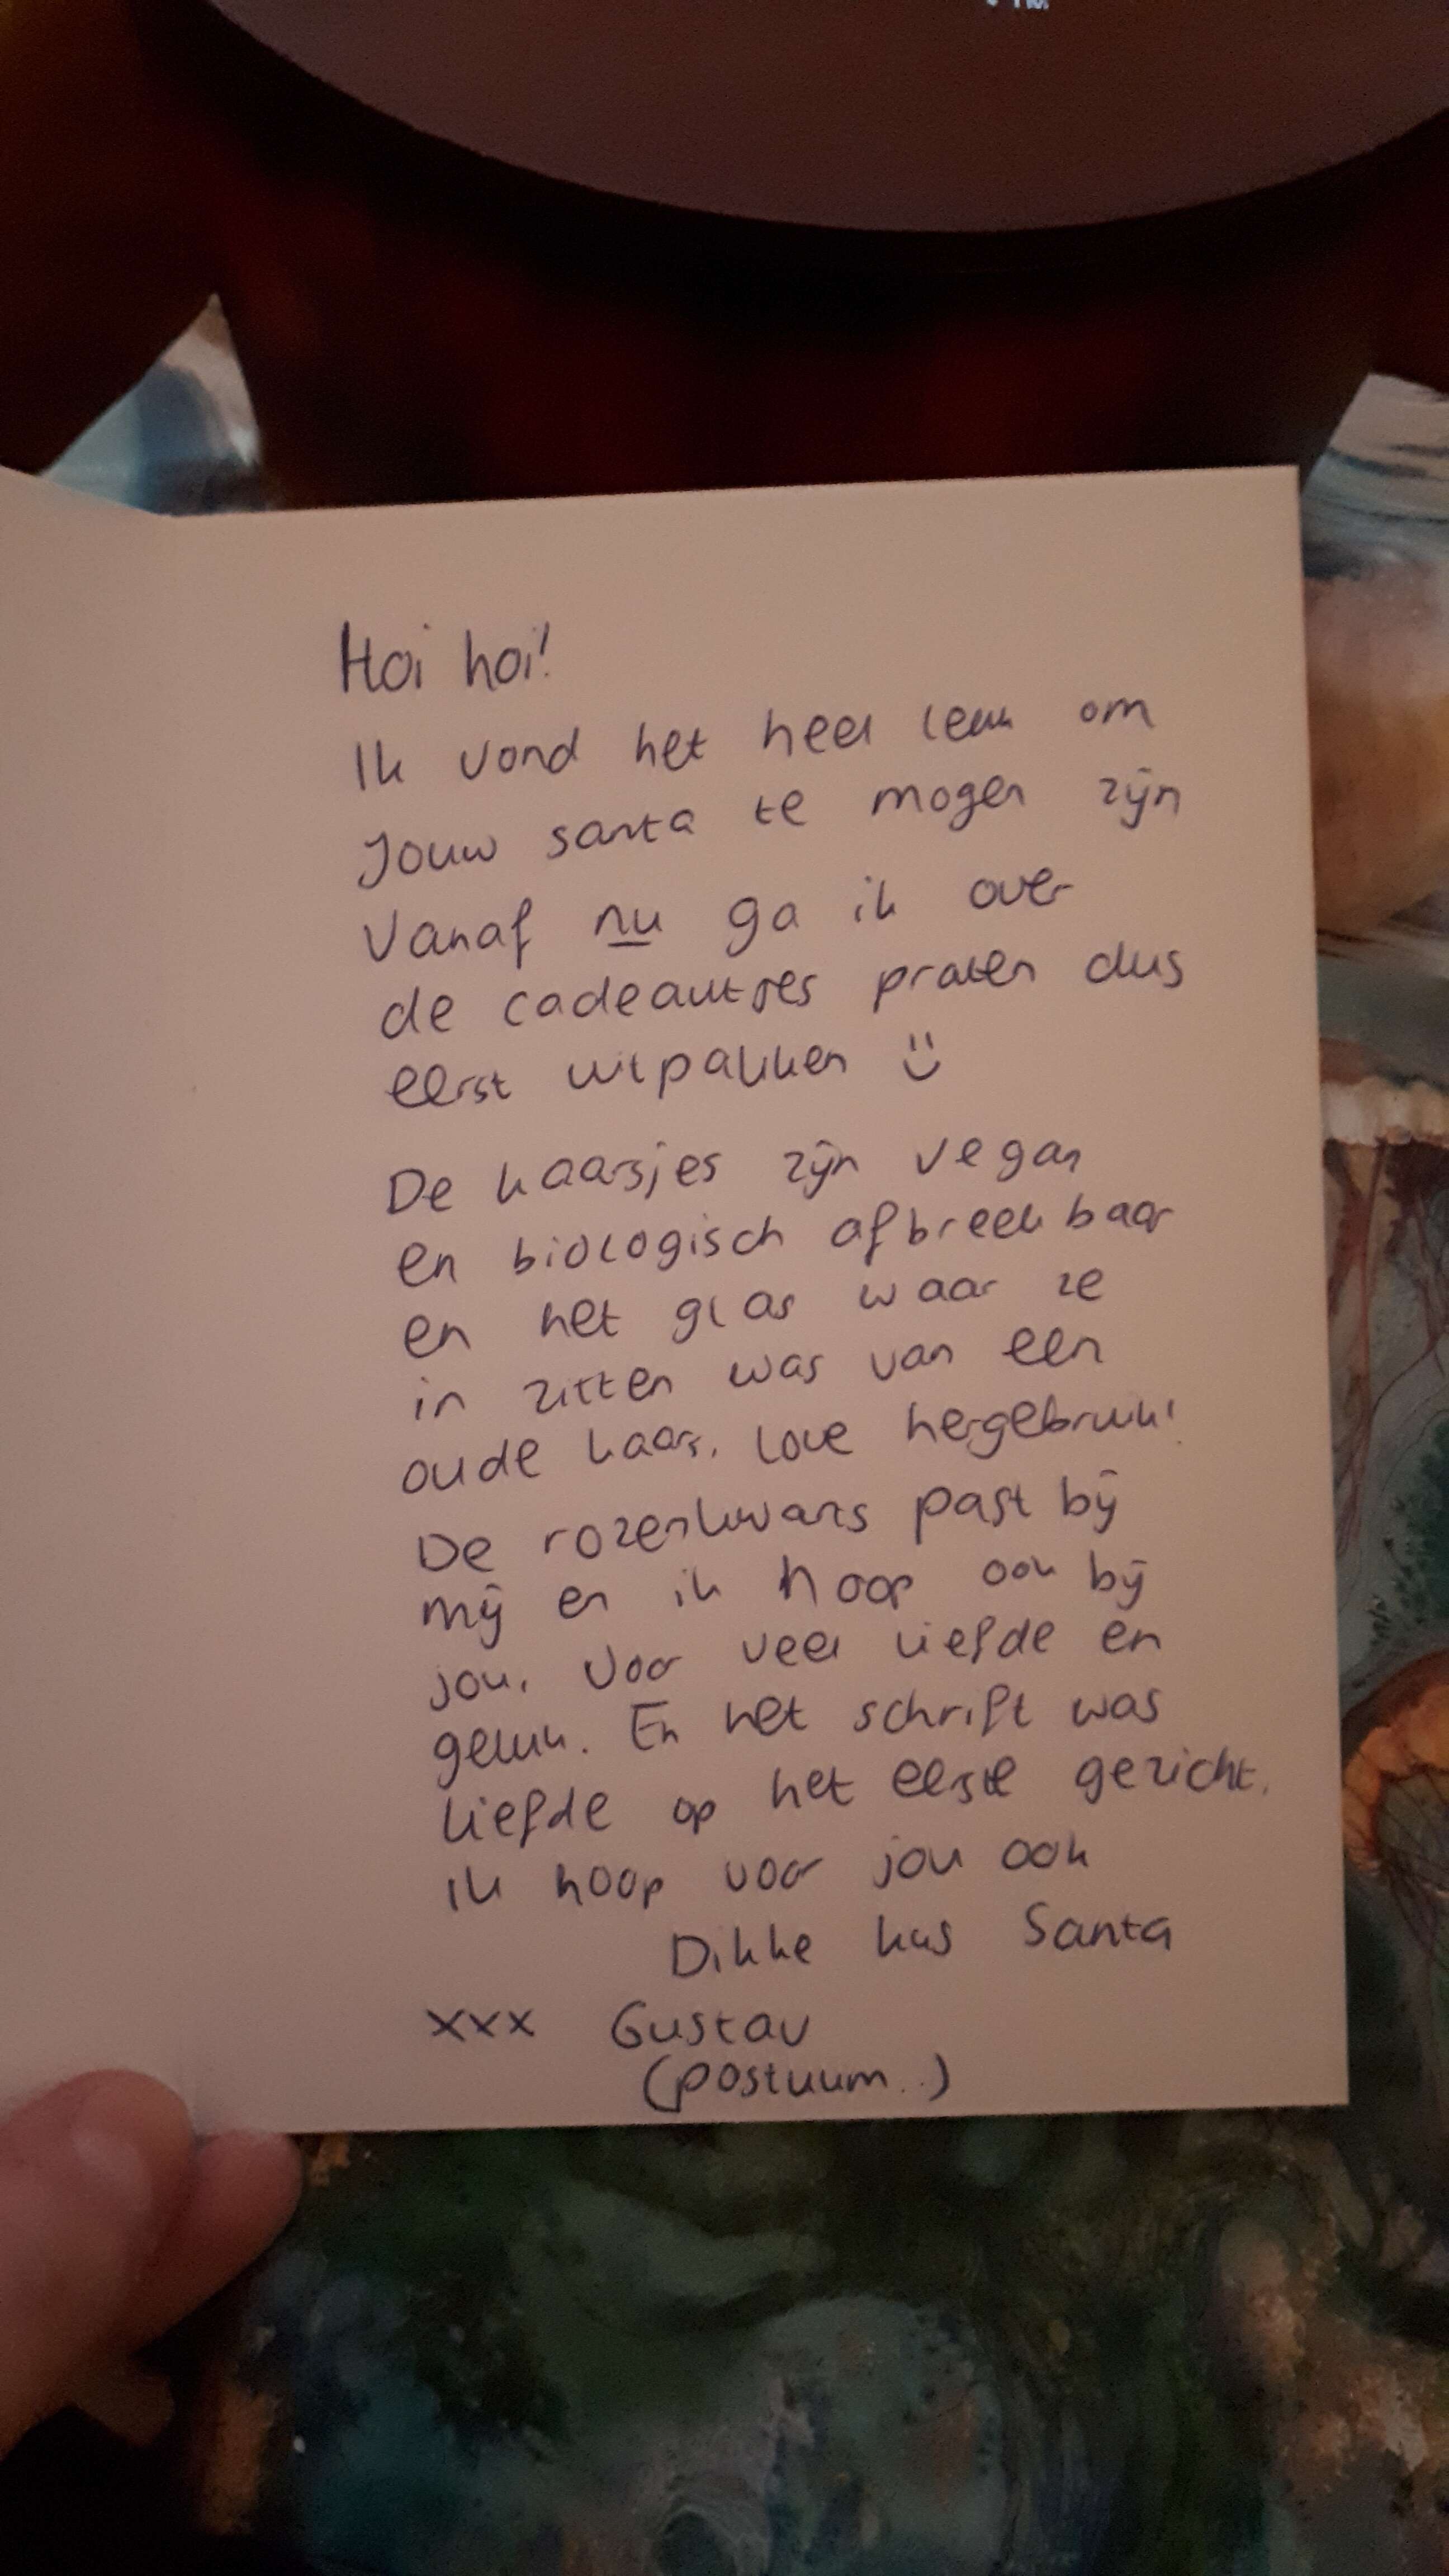 Hoi hoi!
Ik vond het heel leuk om
Jouw santa te mogen zijn
Vanaf nu ga ik over
de cadeautjes praten dus
eerst uitpakken :)
De kaarsjes zijn vegan
en biologisch afbreekbaar
en het glas waar ze
in zitten was van een
oude kaars. Love hergebruik!
De rozenkwarts past bij
mij en ik hoop ook bij
jou. Voor veel liefde en
geluk. En het schrift was
liefde op het eerste gezicht.
ik hoop voor jou ook
Dikke kus Santa
xxx Gustav
(postuum..)